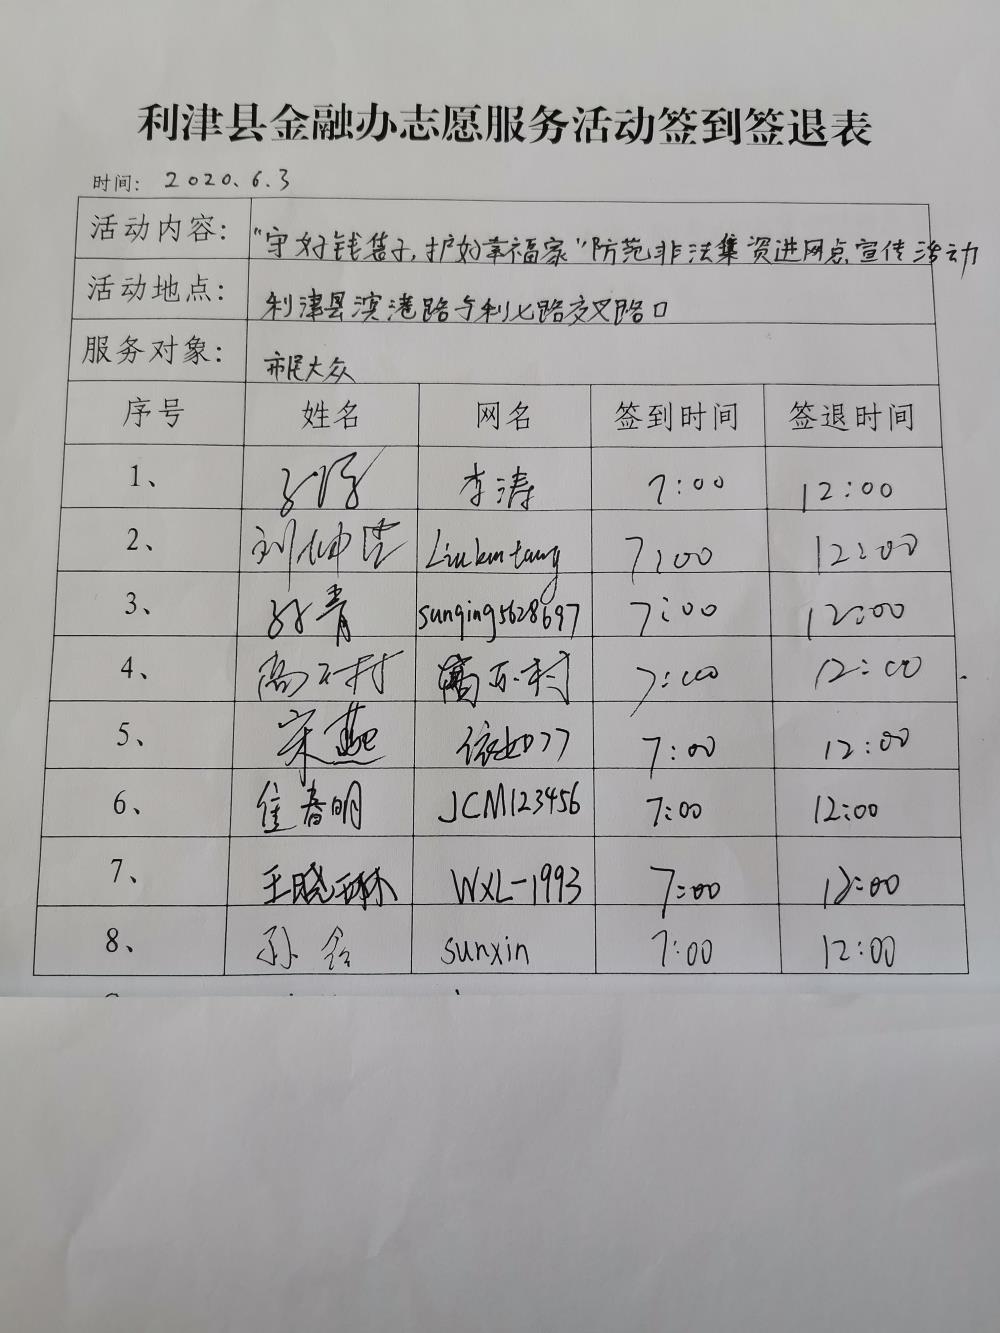 利津县金融办志愿服务活动签到签退表
时间: 2020.6.3
活动内容: "守好钱袋子,护好幸福家"防范非法集资进网点宣传活动
活动地点: 利津县滨港路与利七路交叉路口
服务对象: 市民大众
序号 姓名 网名 签到时间 签退时间
1、 李涛 7:00 12:00
2、 刘坤 7:00 12:00
3、 孙青 sunqing5628697 7:00 12:00
4、 7:00 12:00
5、 宋燕 依如77 7:00 12:00
6、 春明 JCM123456 7:00 12:00
7、 王晓琳 WXL-1993 7:00 12:00
8、 孙 sunxin 7:00 12:00